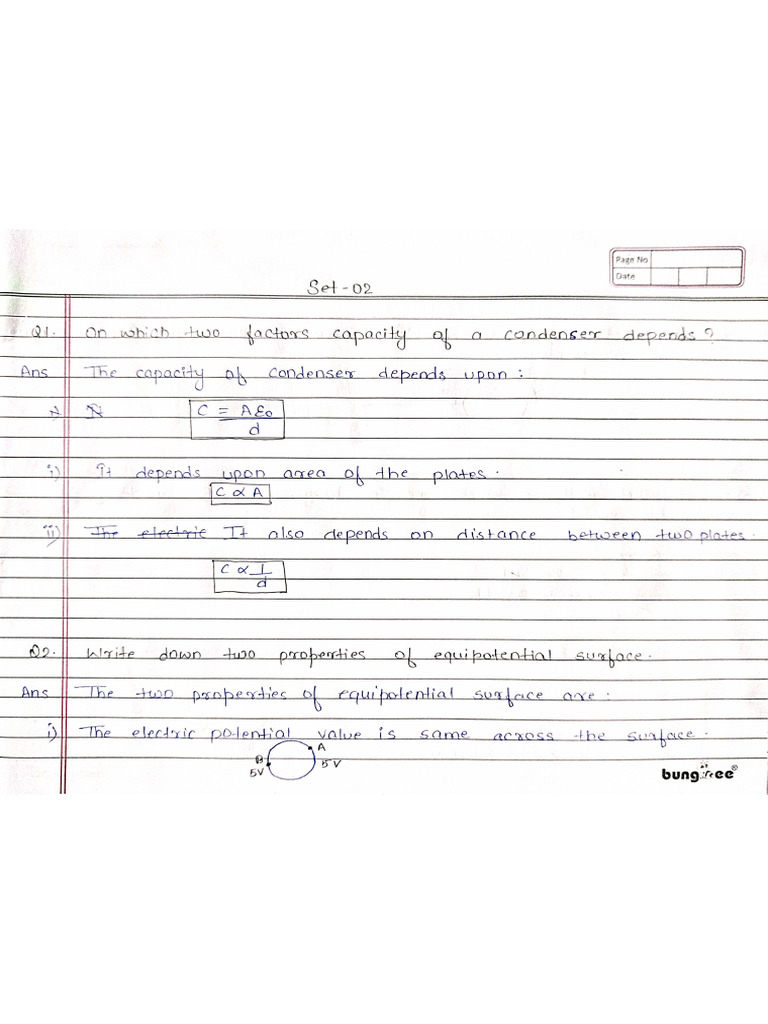 Page No
Date
Set-02
Q1. On which two factors capacity of a condenser depends?
Ans The capacity of condenser depends upon:
C = Aε₀/d
i) It depends upon area of the plates.
C ∝ A
ii) The electric It also depends on distance between two plates.
C ∝ 1/d
Q2. Write down two properties of equipotential surface.
Ans The two properties of equipotential surface are:
i) The electric potential value is same across the surface.
A
B
5V
5V